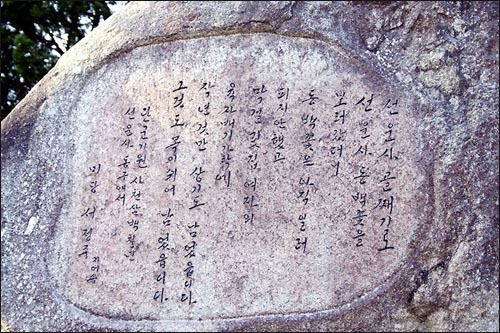 선운사 골째기로
선운사 동백꽃을
보러 갔더니
동백꽃은 아직 일러
피지 안했고
막걸릿집 여자의
육자배기 가락에
작년것만 상기도 남었읍디다
그것도 목이 쉬어 남었읍디다
단군기원 사천삼백칠년
선운사 동구에서
미당 서정주 지어 씀